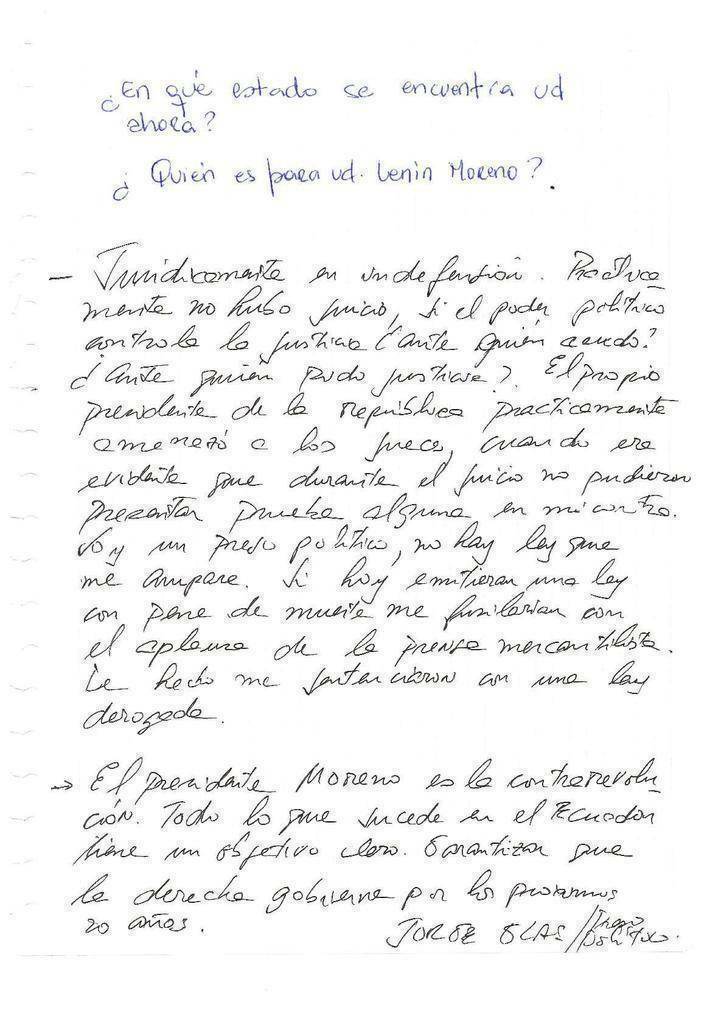 ¿En qué estado se encuentra ud
ahora?
¿Quién es para ud. Lenin Moreno?.
— Jurídicamente en indefensión. Practica
mente no hubo juicio, si el poder político
controla la justicia ¿ante quién acudo?
¿Ante quién pido justicia? El propio
presidente de la república practicamente
amenazó a los jueces, cuando era
evidente que durante el juicio no pudieron
presentar prueba alguna en mi contra.
Soy un preso político, no hay ley que
me ampare. Si hoy emitieran una ley
con pena de muerte me fusilarian con
el aplauso de la prensa mercantilista.
De hecho me sentenciaron con una ley
derogada.
→ El presidente Moreno es la contrarevolu-
ción. Todo lo que sucede en el Ecuador
tiene un objetivo claro. Garantizar que
la derecha gobierne por los proximos
20 años.
JORGE GLAS / Preso Político.